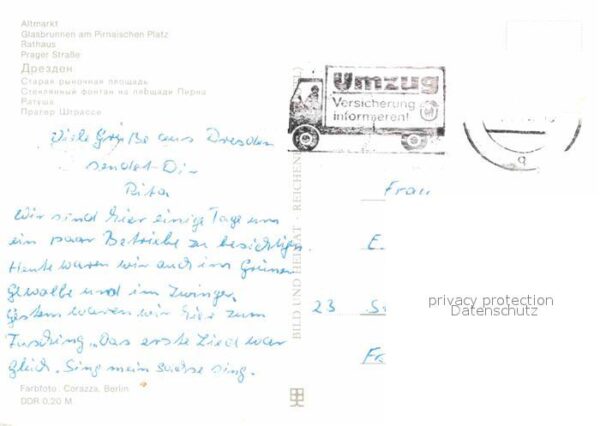 Altmarkt
Glasbrunnen am Pirnaischen Platz
Rathaus
Prager Straße
Дрезден
Старая рыночная площадь
Стеклянный фонтан на площади Пирна
Ратуша
Прагер Штрассе
Umzug
Versicherung
informieren!
Viele Grüße aus Dresden
sendet Dir
Rita
Wir sind hier einige Tage um
ein paar Betriebe zu besichtigen.
Heute waren wir auch im Grünen
Gewölbe und im Zwinger.
Gestern waren wir hier zum
Fasching. Das erste Lied war
gleich. Sing mein Sachse sing.
Frau
E
23 S
Fr
privacy protection
Datenschutz
BILD UND HEIMAT · REICHEN
Farbfoto: Corazza, Berlin
DDR 0,20 M